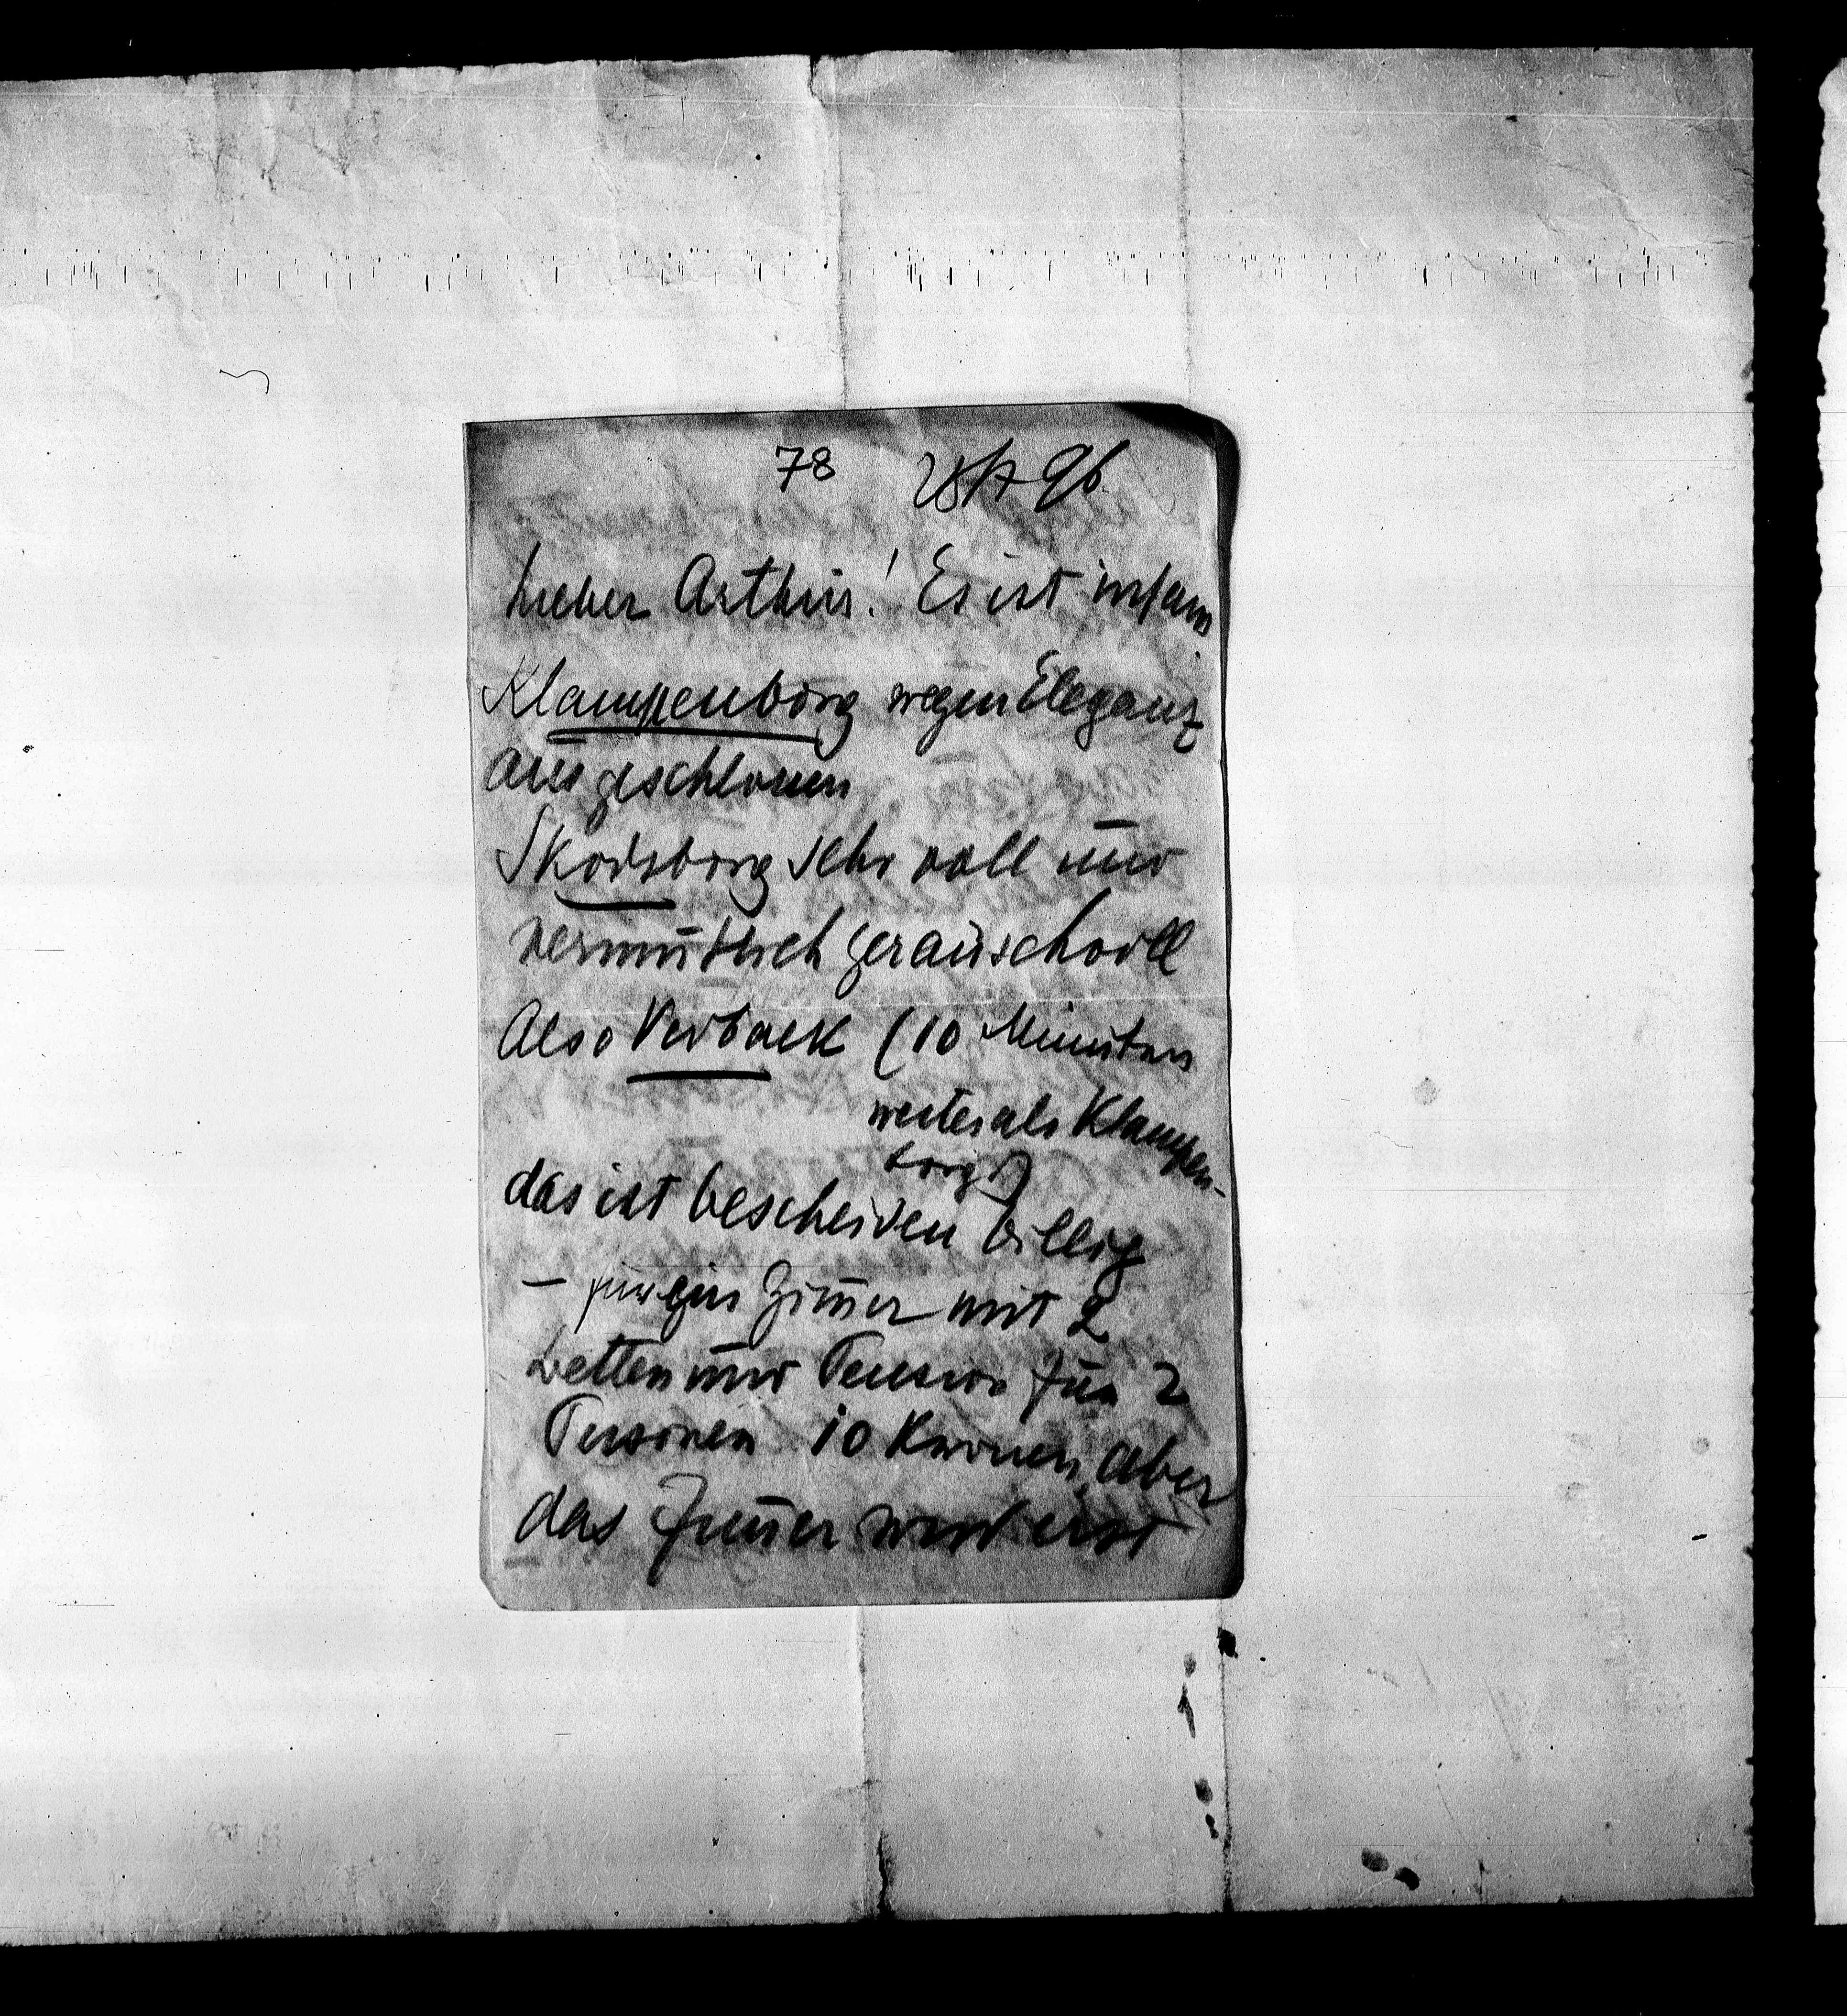 78 28/7 96
Lieber Arthur! Es ist infam
Klampenborg wegen Eleganz
ausgeschlossen
Skodsborg sehr voll und
vermutlich geräuschvoll
Also Vedbaek (10 Minuten
weiter als Klampen-
borg)
das ist bescheiden billig
– für ein Zim̅er mit 2
Betten und Pension für 2
Personen 10 Kronen, aber
das Zim̅er wird erst